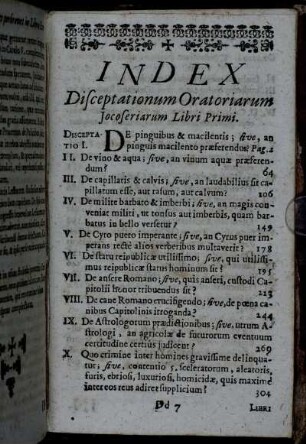 INDEX
Disceptationum Oratoriarum
Jocoseriarum Libri Primi.
DISCEPTA- DE pinguibus & macilentis; sive, an
TIO I. pinguis macilento præferendus? Pag. 2
II. De vino & aqua; sive, an vinum aquæ præferen-
dum? 64
III. De capillatis & calvis; sive, an laudabilius sit ca-
pillatum esse, aut rasum, aut calvum? 106
IV. De milite barbato & imberbi; sive, an magis con-
veniat militi, ut tonsus aut imberbis, quam bar-
batus in bello versetur? 149
V. De Cyro puero imperante; sive, an Cyrus puer im-
perans rectè alios verberibus multaverit? 178
VI. De statu reipublicæ utilissimo; sive, qui utilissi-
mus reipublicæ status hominum sit? 195
VII. De ansere Romano; sive, quis anseri, custodi Ca-
pitolii honor tribuendus sit? 223
VIII. De cane Romano crucifigendo; sive, de pœna ca-
nibus Capitolinis irroganda? 244
IX. De Astrologorum prædictionibus; sive, utrum A-
strologi, an agricolæ de futurorum eventuum
certitudine certius judicent? 269
X. Quo crimine inter homines gravissime delinqua-
tur; sive, contentio 5, sceleratorum, aleatoris,
furis, ebriosi, luxuriosi, homicidæ, quis maxime
inter eos reus adiret supplicium? 304
Dd 7 LIBRI